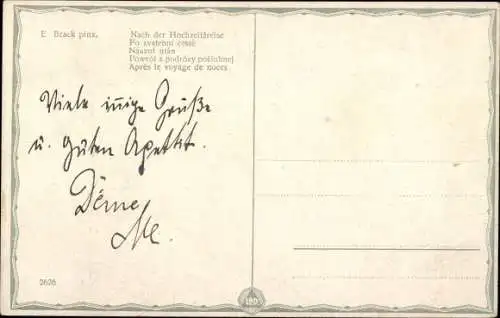 E. Brack pinx.
Nach der Hochzeitsreise
Po svatební cestě
Nászut után
Powrót z podróży poślubnej
Après le voyage de noces
Viele innige Grüße
u. Guten Apetit.
Deine
2626